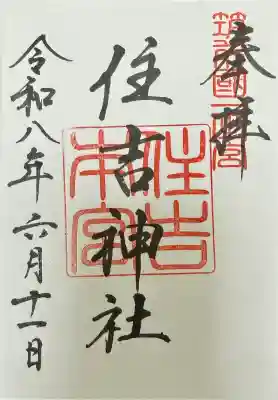 奉拝
筑前國一之宮
住吉神社
住吉本宮
令和八年六月十一日